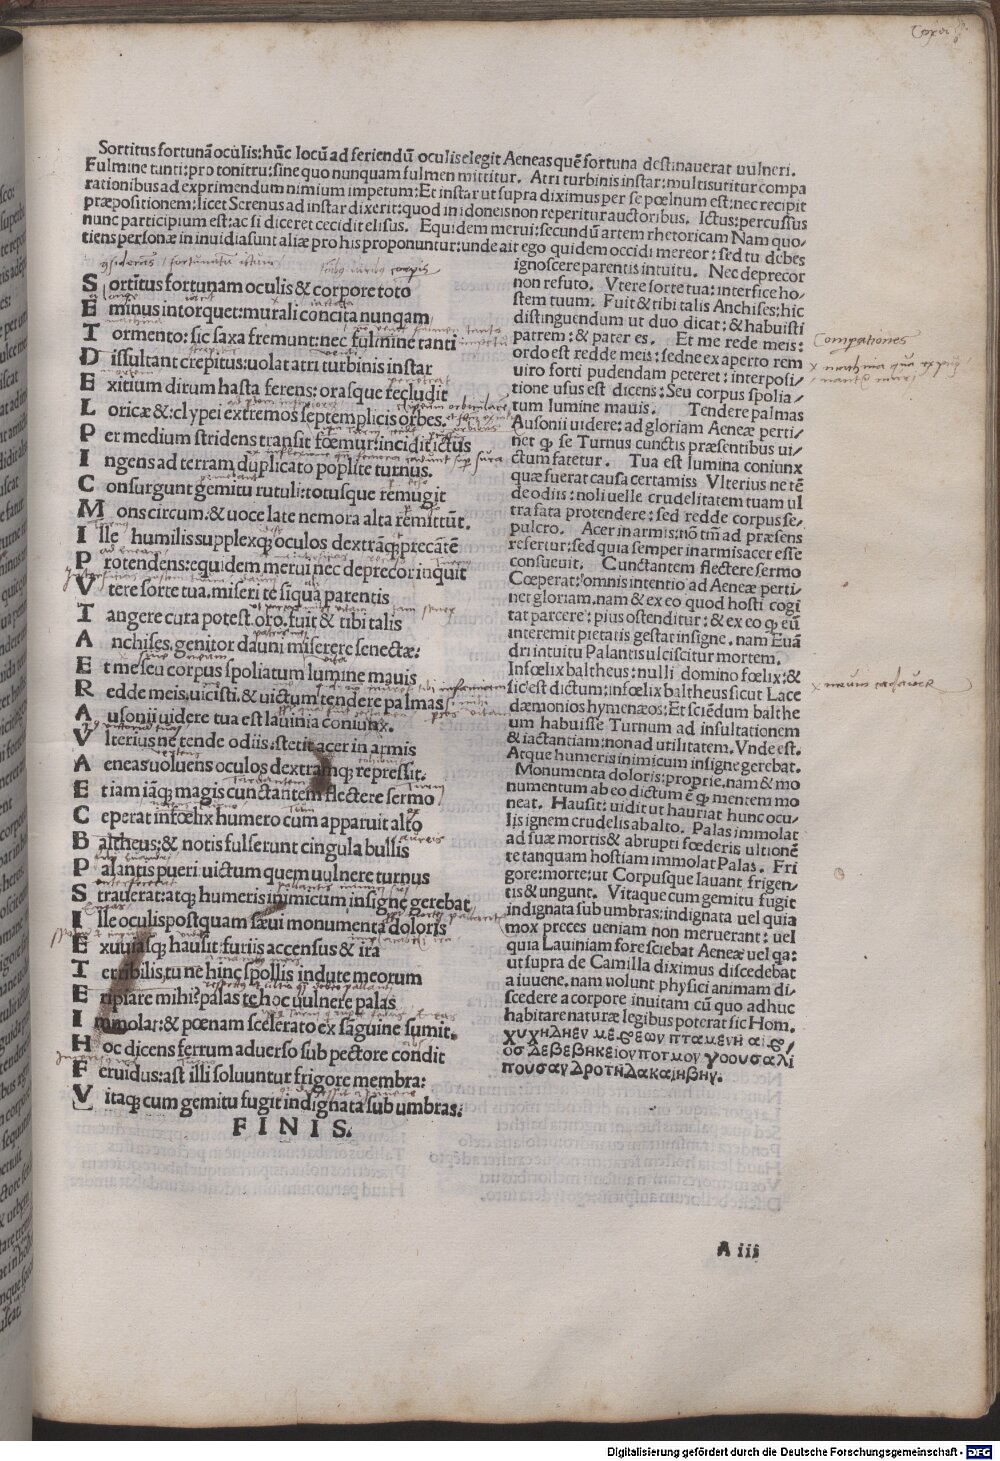 Sortitus fortunā oculis: hūc locū ad feriendū oculis elegit Aeneas quē fortuna destinauerat uulneri.
Fulmine tanti: pro tonitru: sine quo nunquam fulmen mittitur. Atri turbinis instar: multis utitur compa
rationibus ad exprimendum nimium impetum: Et instar ut supra diximus per se pœlnum est: nec recipit
præpositionem: licet Serenus ad instar dixerit: quod in idoneis non reperitur auctoribus. Ictus: percussus
nunc participium est: ac si diceret cecidit elisus. Equidem merui: secundū artem rhetoricam Nam quo-
tiens personæ in inuidia sunt aliæ pro his proponuntur: unde ait ego quidem occidi mereor: sed tu debes
Sortitus fortunam oculis & corpore toto
Eminus intorquet: murali concita nunqam
Tormento: sic saxa fremunt: nec fulmine tanti
Dissultant crepitus: uolat atri turbinis instar
Exitium dirum hasta ferens: orasque recludit
Loricæ &: clypei extremos septemplicis orbes.
Per medium stridens transit fœmur: incidit ictus
Ingens ad terram duplicato poplite turnus.
Consurgunt gemitu rutuli: totusque remugit
Mons circum: & uoce late nemora alta remittūt.
Ille humilis supplexq; oculos dextrāq; precātē
Protendens: equidem merui nec deprecor inquit
Vtere sorte tua. miseri te siqua parentis
Tangere cura potest. oro. fuit & tibi talis
Anchises. genitor dauni miserere senectæ:
Et me seu corpus spoliatum lumine mauis
Redde meis. uicisti. & uictum tendere palmas
Ausonii uidere tua est lauinia coniunx.
Vlterius ne tende odiis: stetit acer in armis
Aeneas uoluens oculos dextramq; repressit.
Etiam iāq; magis cunctantem flectere sermo
Ceperat infœlix humero cum apparuit alto
Baltheus: & notis fulserunt cingula bullis
Palantis pueri: uictum quem uulnere turnus
Strauerat: atq; humeris inimicum insigne gerebat
Ille oculis postquam sæui monumenta doloris
Exuuiasq; hausit: furiis accensus & ira
Terribilis, tu ne hinc spoliis indute meorum
Eripiare mihi? palas te hoc uulnere palas
Immolat: & pœnam scelerato ex sāguine sumit.
Hoc dicens ferrum aduerso sub pectore condit
Feruidus: ast illi soluuntur frigore membra:
Vitaq; cum gemitu fugit indignata sub umbras.
FINIS.
ignoscere parentis intuitu. Nec deprecor
non refuto. Vtere sorte tua: interfice ho-
stem tuum. Fuit & tibi talis Anchises: hic
distinguendum ut duo dicat: & habuisti
patrem: & pater es. Et me rede meis:
ordo est redde meis: sed ne ex aperto rem
uiro forti pudendam peteret: interposi-
tione usus est dicens: Seu corpus spolia-
tum lumine mauis. Tendere palmas
Ausonii uidere: ad gloriam Aeneæ perti-
net q̃ se Turnus cunctis præsentibus ui-
ctum fatetur. Tua est lumina coniunx
quæ fuerat causa certamiss Vlterius ne tē
de odiis: noli uelle crudelitatem tuam ul
tra fata protendere: sed redde corpus se-
pulcro. Acer in armis: nō tm̄ ad præsens
refertur: sed quia semper in armis acer esse
consueuit. Cunctantem flectere sermo
Cœperat: omnis intentio ad Aeneæ perti-
net gloriam. nam & ex eo quod hosti cogi
tat parcere: pius ostenditur: & ex eo q̃ eū
interemit pietatis gestat insigne. nam Euā
dri intuitu Palantis ulciscitur mortem.
Infœlix baltheus: nulli domino fœlix: &
sic est dictum: infœlix baltheus sicut Lace
dæmonios hymenæos: Et sciēdum balthe
um habuisse Turnum ad insultationem
& iactantiam: non ad utilitatem. Vnde est.
Atque humeris inimicum insigne gerebat.
Monumenta doloris: proprie. nam & mo
numentum ab eo dictum ē q̃ mentem mo
neat. Hausit: uidit ut hauriat hunc ocu
lis ignem crudelis ab alto. Palas immolat
ad suæ mortis & abrupti fœderis ultionē
te tanquam hostiam immolat Palas. Fri
gore: morte: ut Corpusque lauant frigen-
tis & ungunt. Vitaque cum gemitu fugit
indignata sub umbras: indignata uel quia
mox preces ueniam non meruerant: uel
quia Lauiniam fore sciebat Aeneæ uel qa:
ut supra de Camilla diximus discedebat
a iuuene. nam uolunt physici animam di-
scedere a corpore inuitam cū quo adhuc
habitare naturæ legibus poterat sic Hom.
A iii
Digitalisierung gefördert durch die Deutsche Forschungsgemeinschaft - DFG